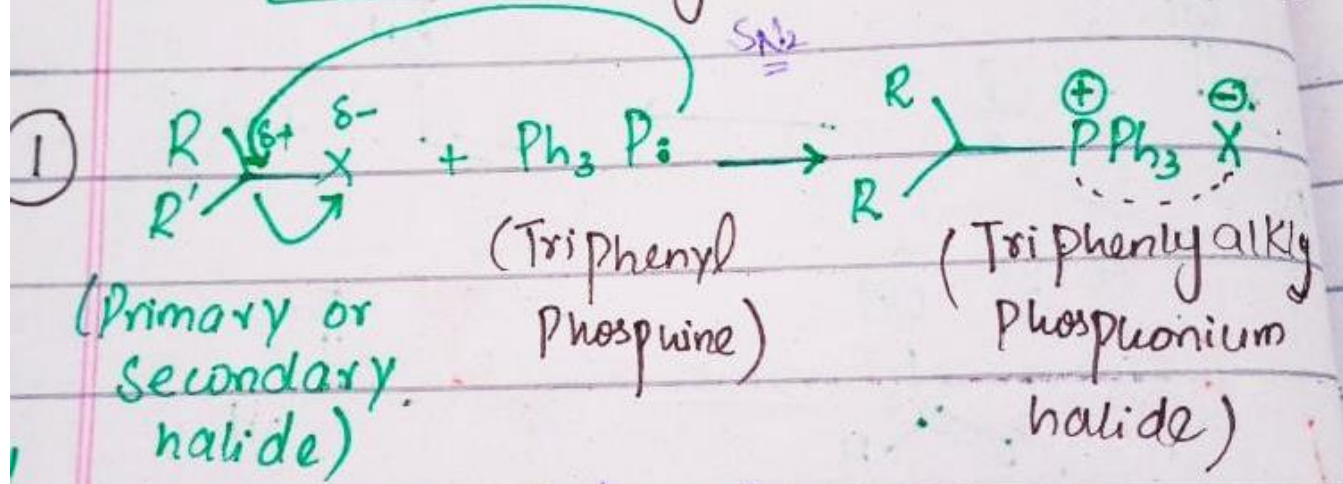 SN2
1 R R' δ+ δ- X + Ph3 P: → R R ⊕ PPh3 ⊖ X
(Primary or
Secondary
halide)
(Triphenyl
Phosphine)
(Triphenly alkly
Phosphonium
halide)